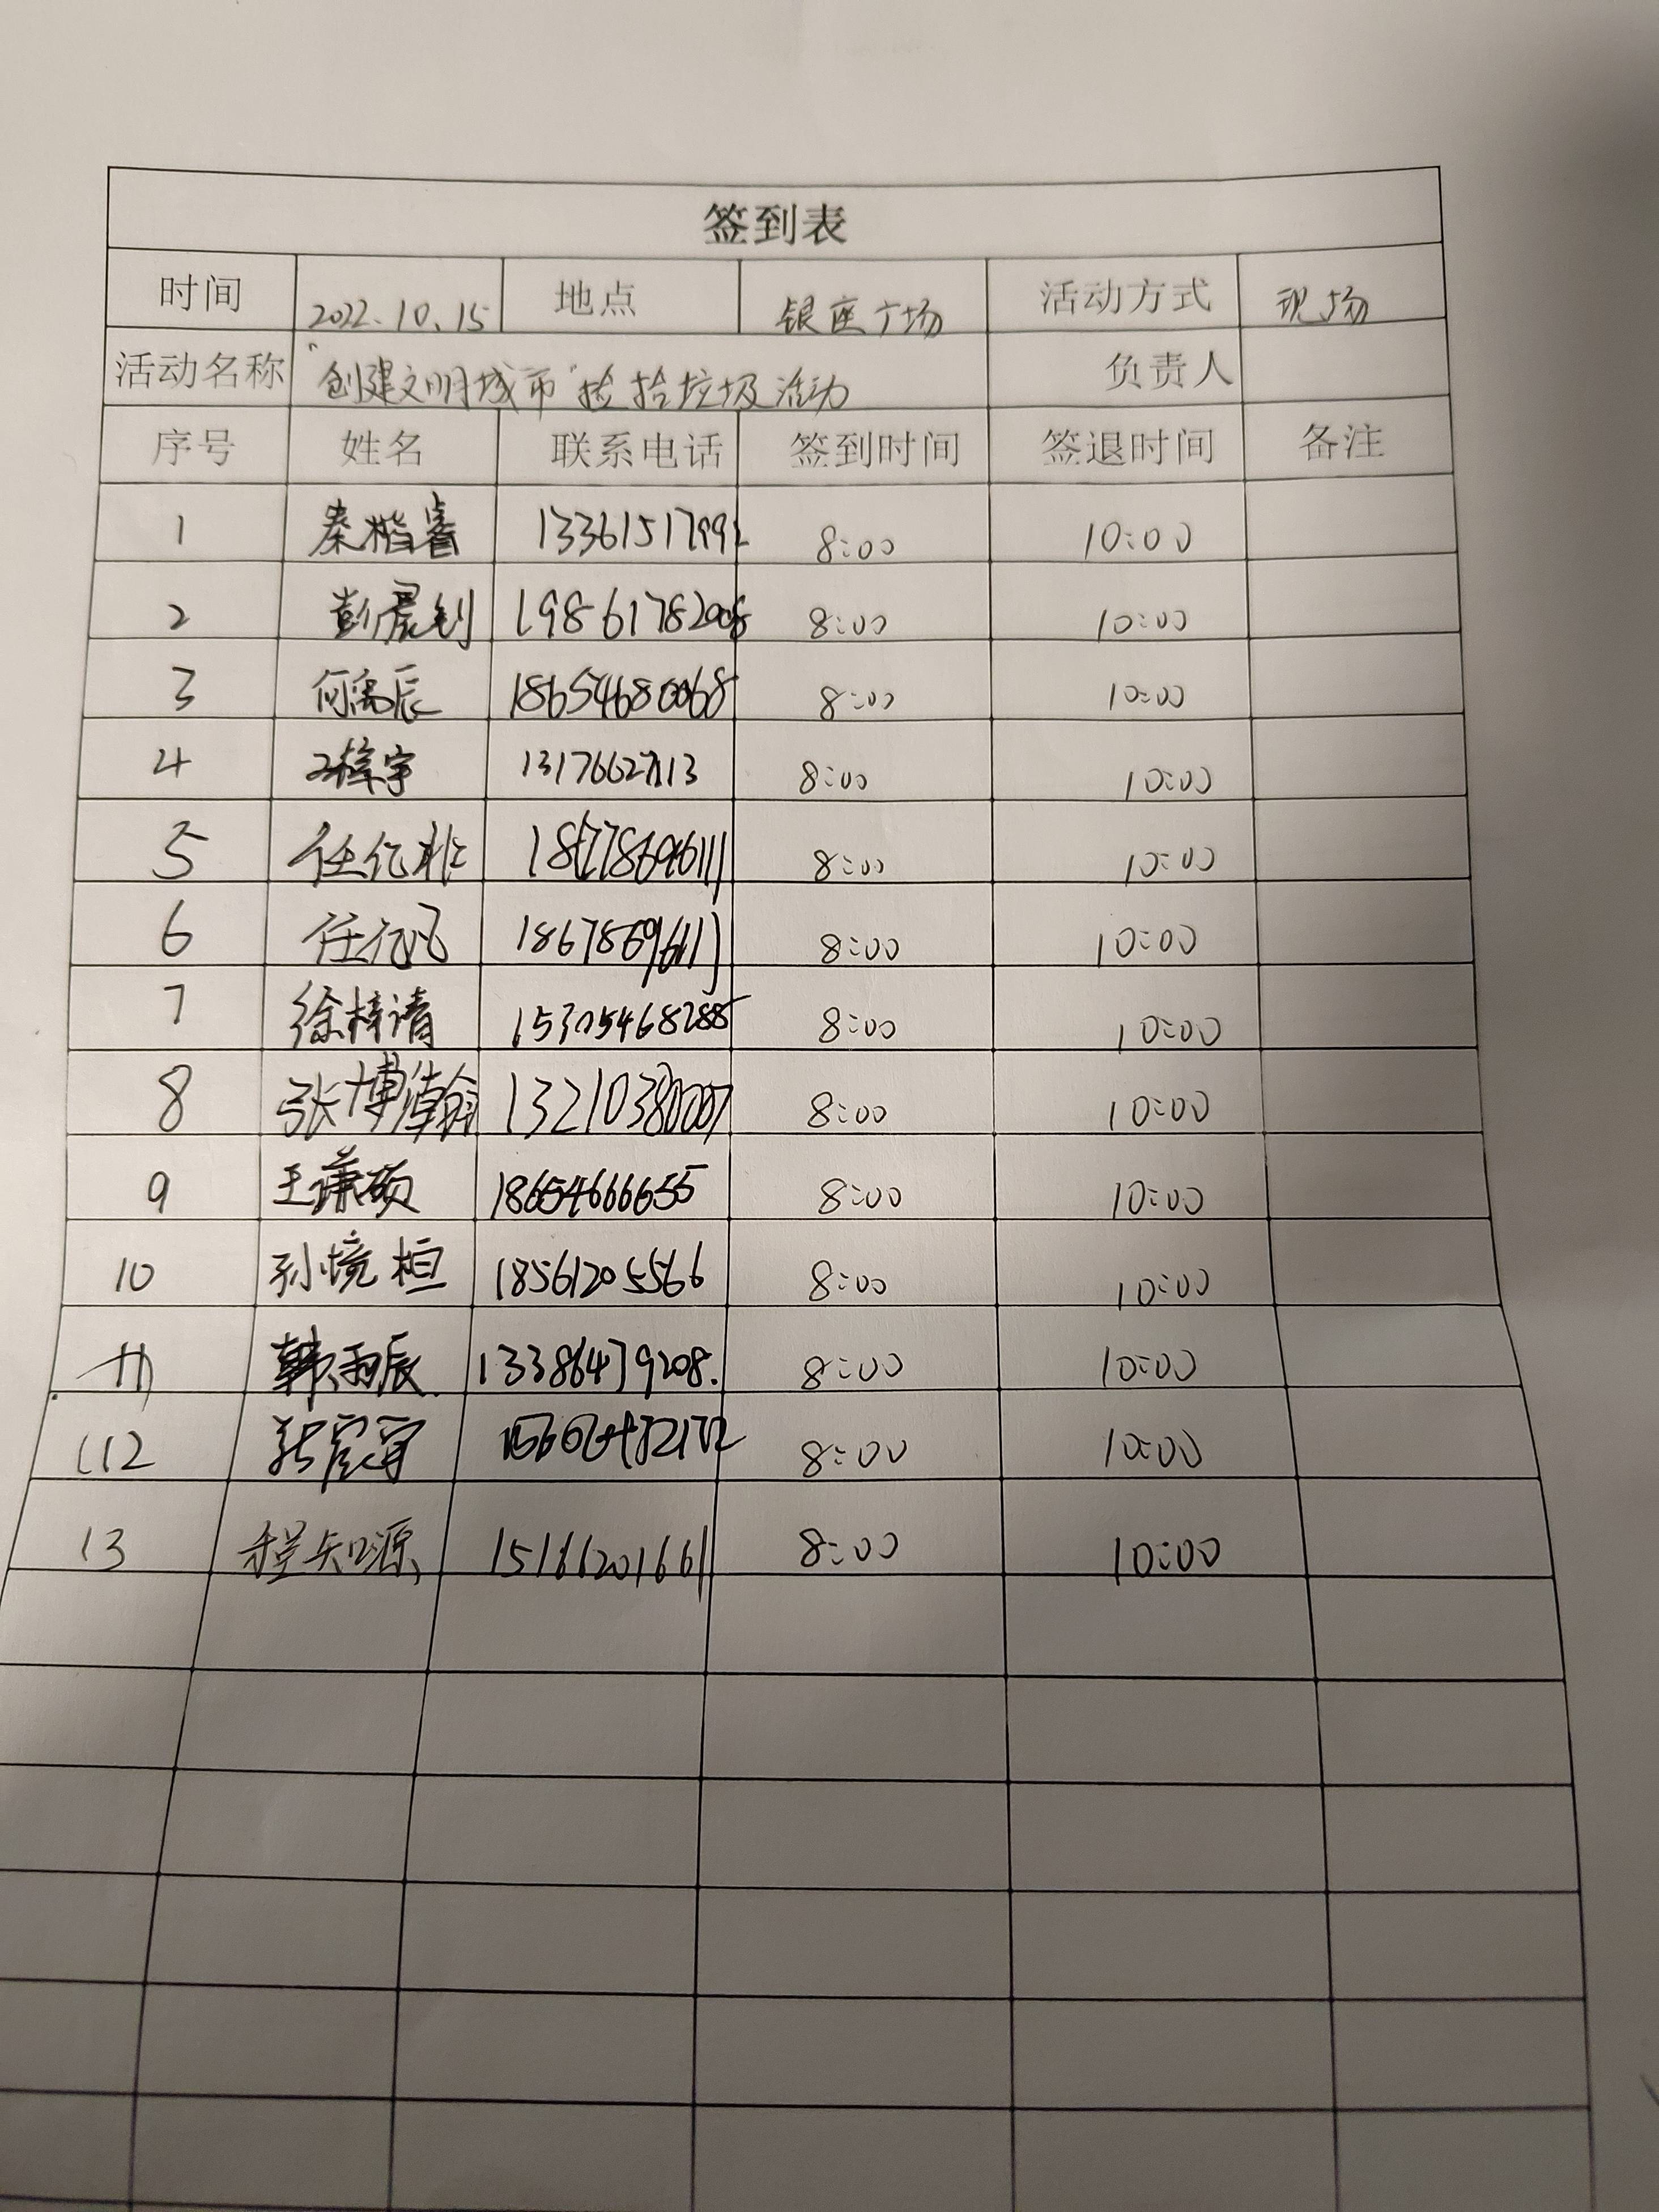 签到表
时间 2022.10.15 地点 银座广场 活动方式 现场
活动名称 "创建文明城市"捡拾垃圾活动 负责人
序号 姓名 联系电话 签到时间 签退时间 备注
1 秦楷睿 13361517992 8:00 10:00
2 彭晨钊 19861782008 8:00 10:00
3 何禹辰 18654680068 8:00 10:00
4 梓宇 8:00 10:00
5 任亿非 8:00 10:00
6 任亿飞 18678696111 8:00 10:00
7 徐梓清 15305468288 8:00 10:00
8 张博瀚 13210380007 8:00 10:00
9 王谦硕 18654666655 8:00 10:00
10 孙境桓 18561205566 8:00 10:00
11 韩雨辰 13386479208. 8:00 10:00
12 张宸 8:00 10:00
13 程知源 15166201661 8:00 10:00